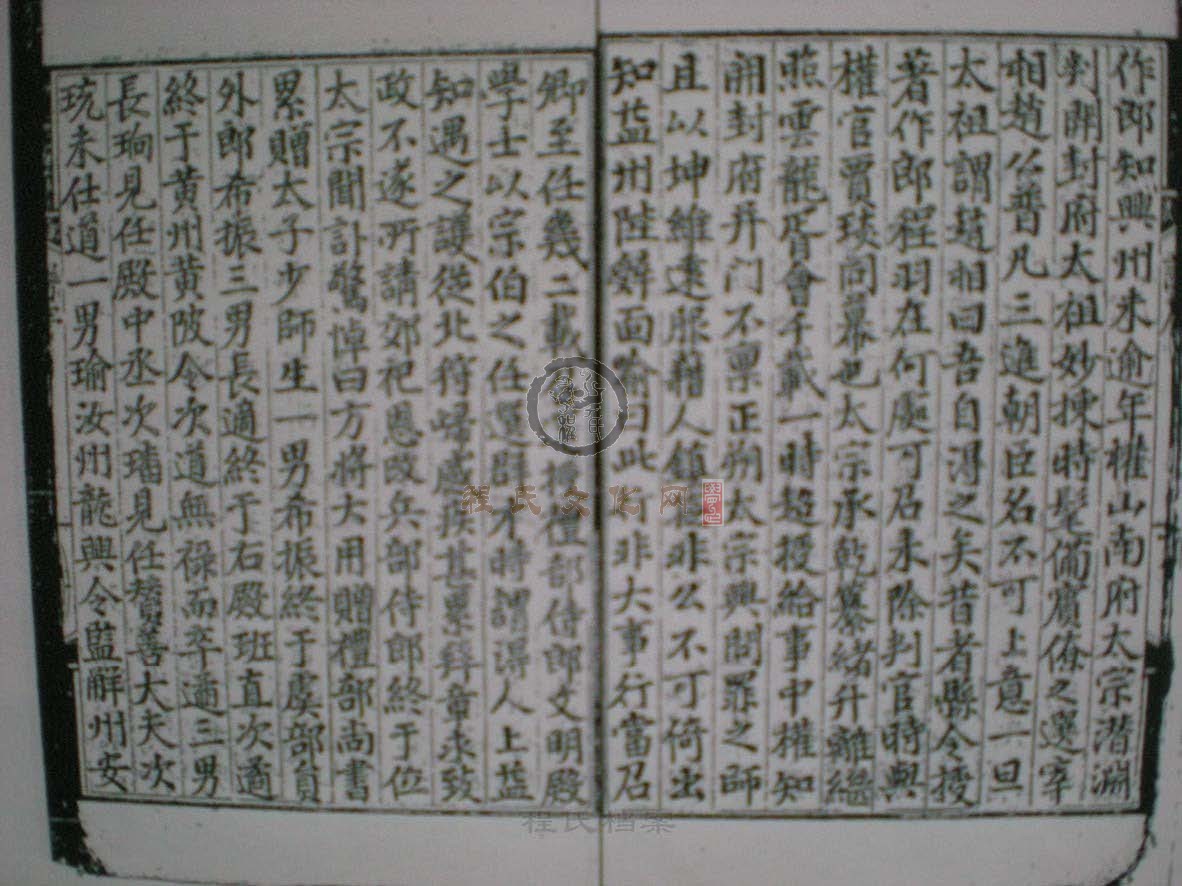 作郎知興州未逾年權山南府太宗潜淵
判開封府太祖妙揀時髦俻賓僚之選宰
相趙公普凡三進朝臣名不可上意一旦
太祖謂趙相曰吾自淂之矣昔者縣令授
著作郎程羽在何處可召来除判官時與
權官賈琰同幕也太宗承乹纂緒升離繼
照雲龍胥會千載一時超授給事中權知
開封府并门不禀正朔太宗興問罪之師
且以坤維遠服藉人鎮非公不可倚出
知益州陛辤面喻曰此行非大事行當召
卿至任幾二載授禮部侍郎文明殿
學士以宗伯之任選群才時謂淂人上益
知遇之護從北狩㱕感疾甚累拜章求致
政不遂所請郊祀恩改兵部侍郎終于位
太宗聞訃驚悼曰方将大用贈禮部尚書
累贈太子少師生一男希振終于虞部負
外郎希振三男長適終于右殿班直次遹
終于黄州黄陂令次道無禄而卒遹三男
長珦見任殿中丞次璠見任賛善大夫次
珫未仕道一男瑜汝州龍興令監解州安
程氏文化网
程氏档案